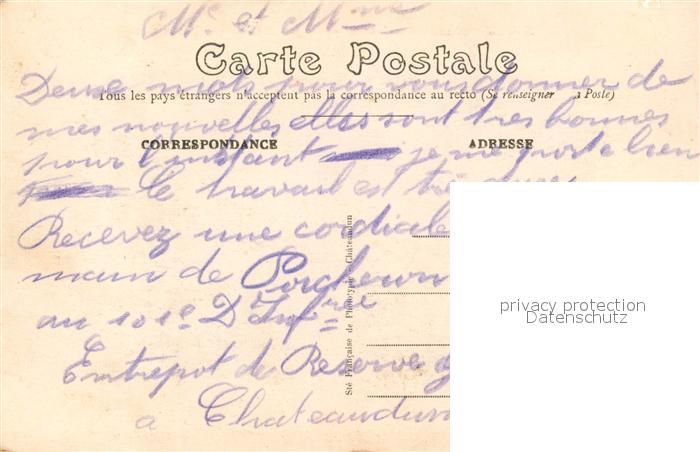 Mr et Mme
Carte Postale
Deux mots pour vous donner de
Tous les pays étrangers n'acceptent pas la correspondance au recto (Se renseigner à la Poste)
mes nouvelles elles sont très bonnes
CORRESPONDANCE
ADRESSE
pour l'instant je me porte bien
le travail est très
Recevez une cordiale
main de
au 101e D'Infre
Entrepot de Reserve
a Chateaudun
Sté Française de Phototypie, Châteaudun
privacy protection
Datenschutz